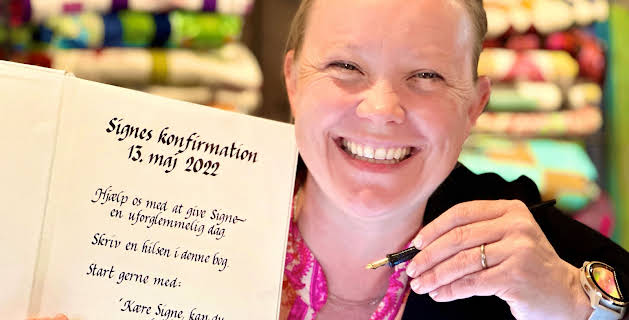 Signes konfirmation
13. maj 2022
Hjælp os med at give Signe
en uforglemmelig dag.
Skriv en hilsen i denne bog.
Start gerne med:
"Kære Signe, kan du